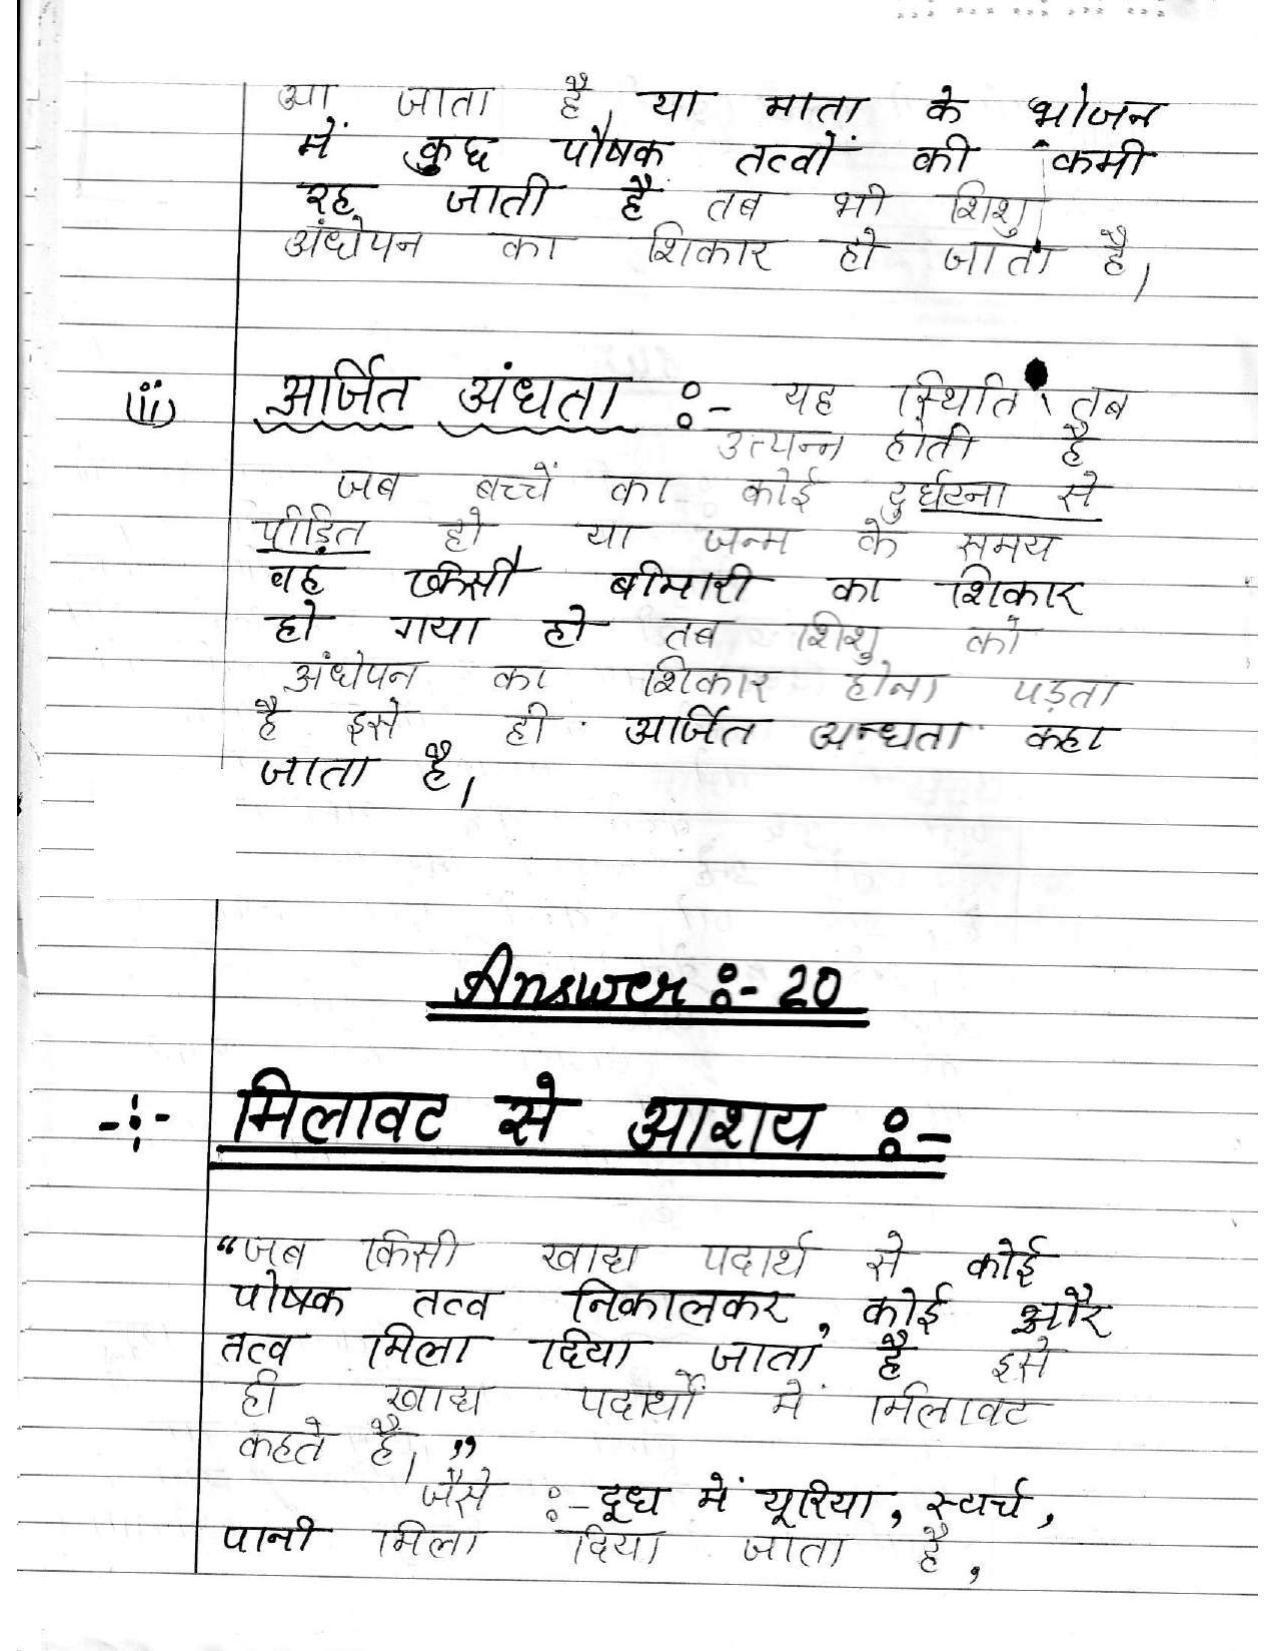 आ जाता है, या माता के भोजन
में कुछ पौषक तत्वों की कमी
रह जाती है तब भी शिशु
अंधेपन का शिकार हो जाता है।
(ii) आर्जित अंधता :- यह स्थिति तब
उत्पन्न होती है
जब बच्चें का कोई दुर्घटना से
पीड़ित हो या जन्म के समय
वह किसी बीमारी का शिकार
हो गया हो तब शिशु को
अंधेपन का शिकार होना पड़ता
है इसे ही आर्जित अन्धता कहा
जाता है।
Answer :- 20
-:- मिलावट से आशय :-
“जब किसी खाद्य पदार्थ से कोई
पोषक तत्व निकालकर, कोई और
तत्व मिला दिया जाता है इसे
ही खाद्य पदार्थों में मिलावट
कहते है। ”
जैसे :- दूध में यूरिया, स्टार्च,
पानी मिला दिया जाता है,